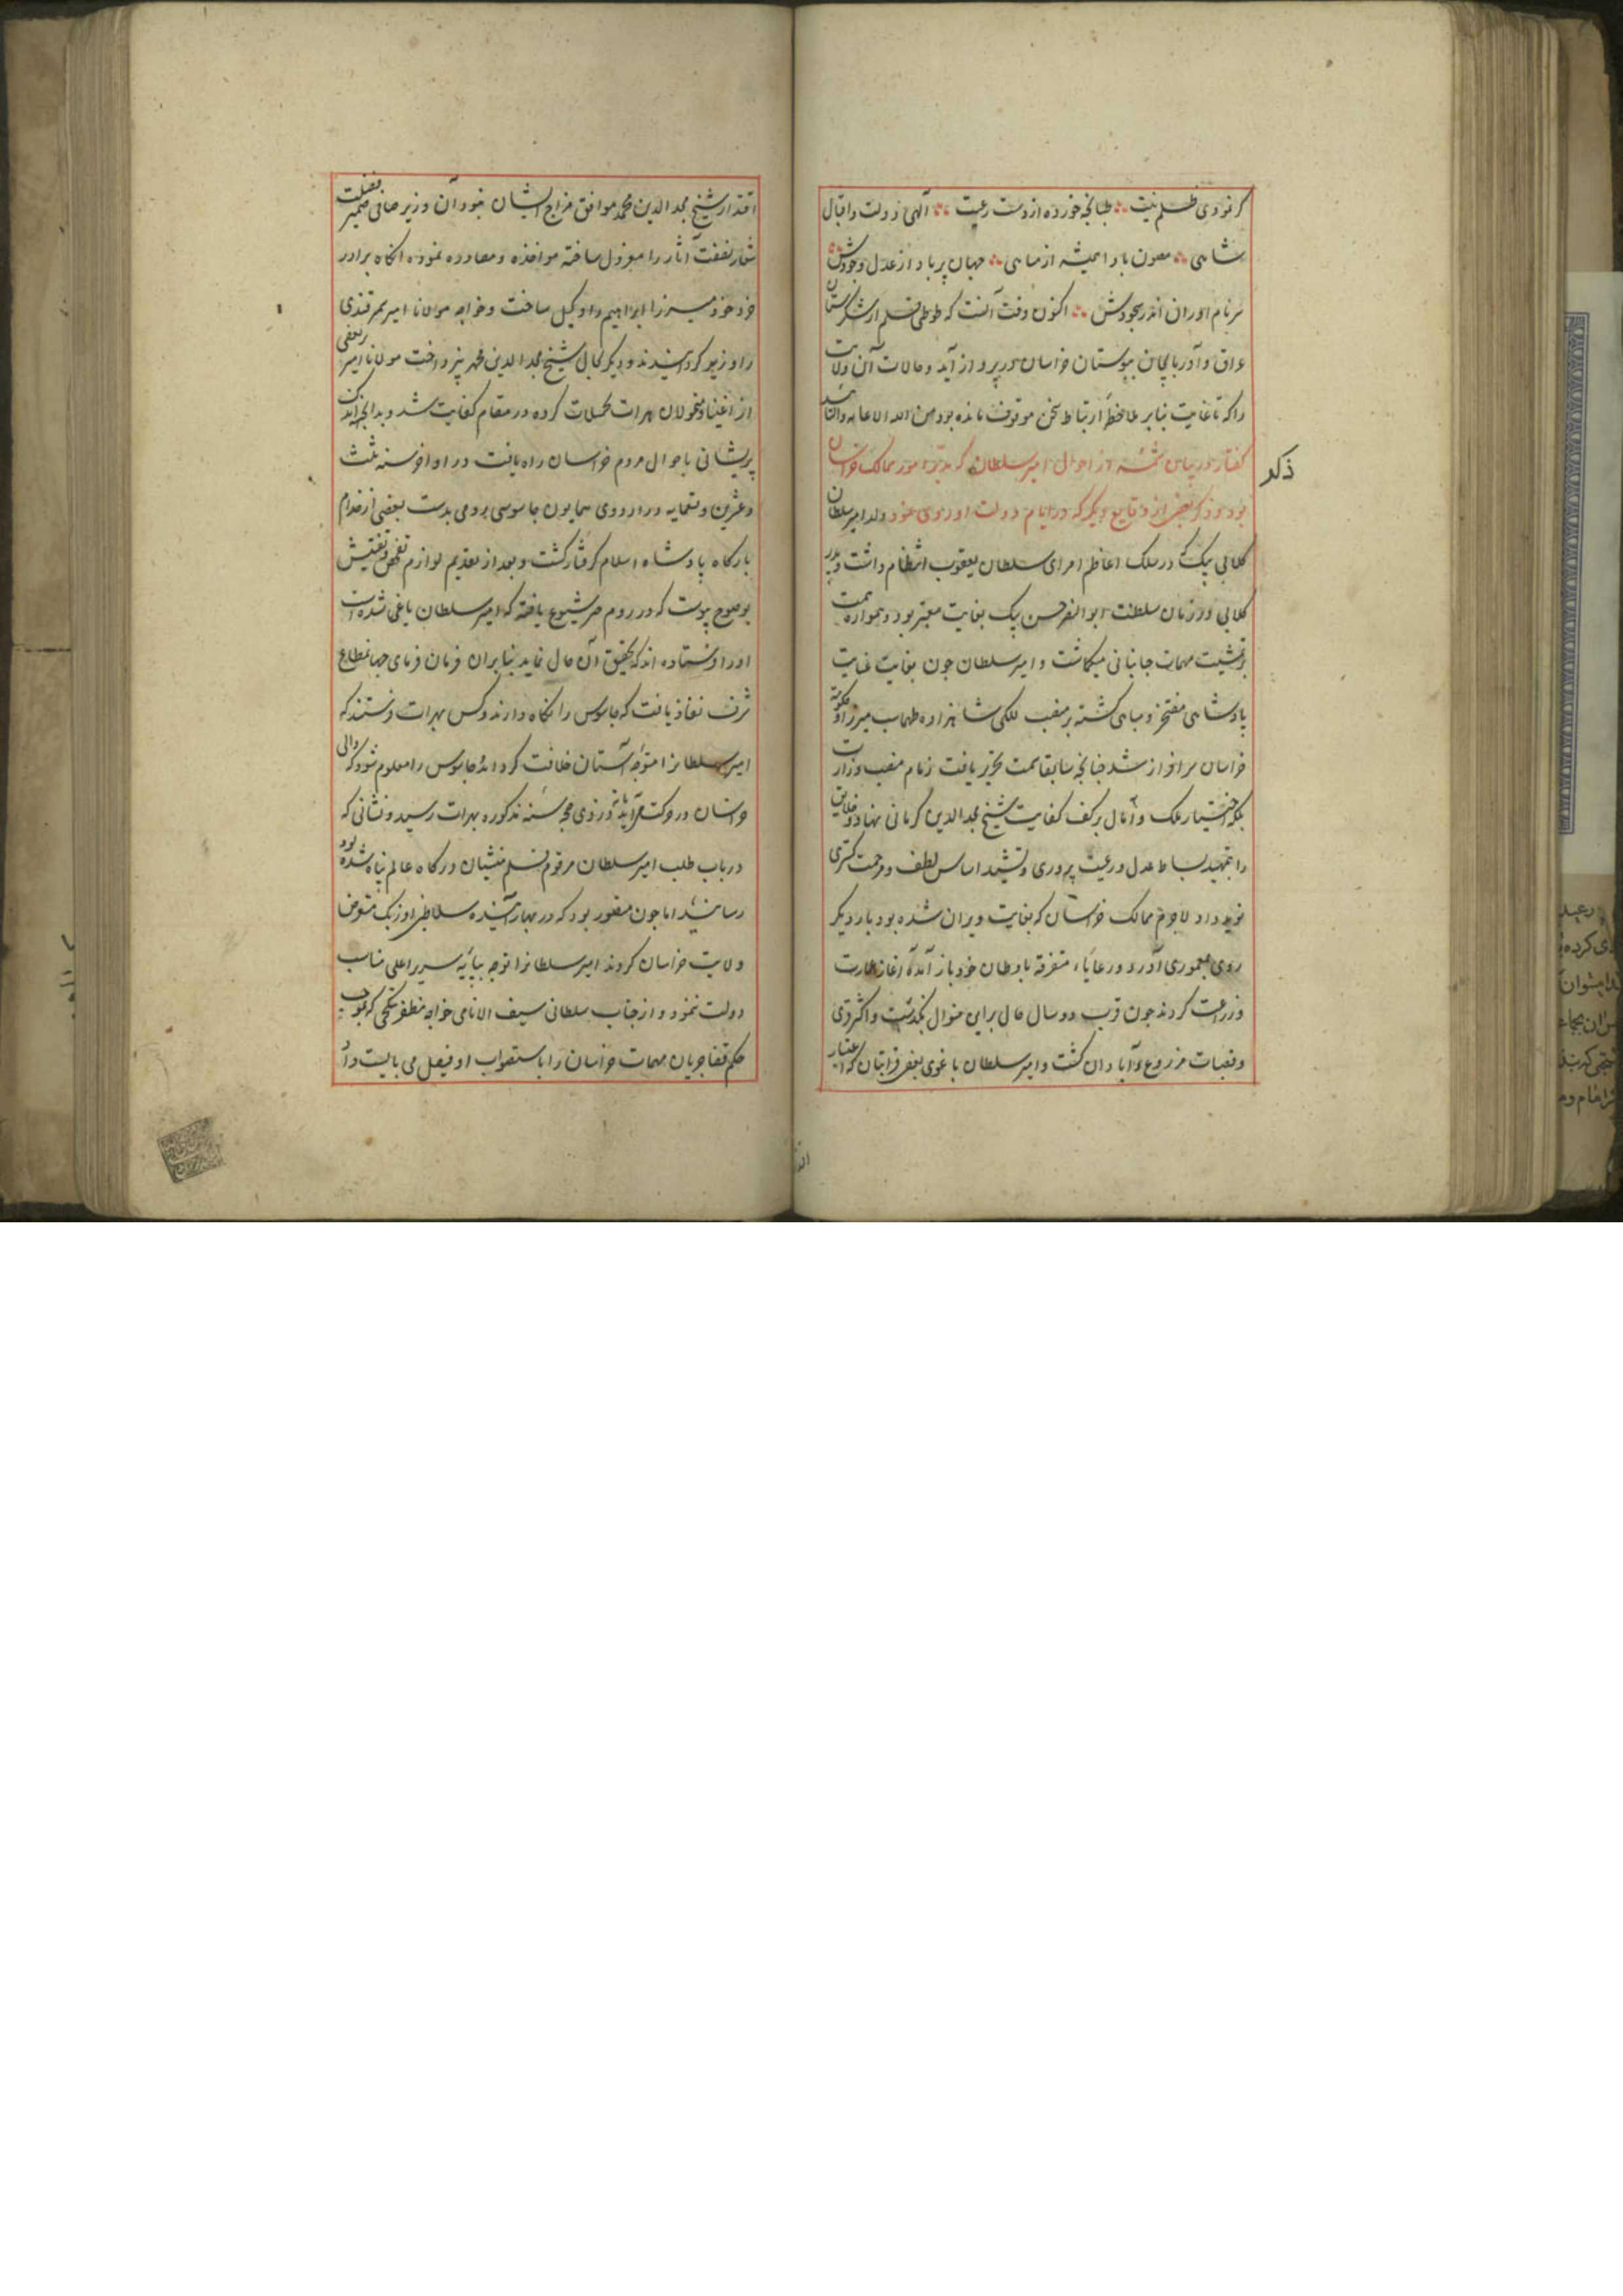 کر نوردی ظلم نیت طبانچه خورده از دست رعیت آلهی دولت واقبال
شاهی مصون باد همیشه از مناهی جهان پر باد از عدل وجودش
سرنام اوران اندر سجودش اکنون وقت آنست که طوطی قلم از شکرستان
عراق و آذربایجان ببوستان خراسان در پرواز آید و حالات آن ولایت
را که تا غایت بنابر ملاحظه ارتباط سخن موقوف مانده بود من الله الاعانه والتائید
کفتار در بیان شمه از احوال امیر سلطان که مدبر امور ممالک خراسان
بود و ذکر بعضی از وقایع دیکر که در ایام دولت او روی نمود ولد امیر سلطان
ذکر
کلابی بیک در سلک اعاظم امرای سلطان یعقوب انتظام داشت و پدر
کلابی در زمان سلطنت ابو النصر حسن بیک بغایت معتبر بود و همواره همت
بر تمشیت مهمات جهانبانی میکماشت و امیر سلطان چون بغایت عنایت
پادشاهی مفتخر و مباهی کشته بر منصب للکی شاهزاده طهماسب میرزا و حکومت
خراسان سرافراز شد چنانچه سابقا سمت تحریر یافت زمام منصب وزارت
بلکه اختیار ملک و مال بر کف کفایت شیخ مجد الدین کرمانی نهاد و خلایق
را بتمهید بساط عدل و رعیت پروری و تشیید اساس لطف و مرحمت کستری
نوید داد لاجرم ممالک خراسان که بغایت ویران شده بود بار دیکر
روی بمعموری آورد و رعایاء متفرقه باوطان خود باز آمده آغاز عمارت
وزراعت کردند چون قرب دو سال حال براین منوال بگذشت و اکثر قری
وقصبات مزروع و آبادان کشت و امیر سلطان باغوای بعضی قرابتان که اعتبار
اقتدار شیخ مجد الدین محمد موافق مزاج ایشان نبود آن وزیر صافی ضمیر فضیلت
شعار نصفت آثار را معزول ساخته مواخذه و مصادره نموده انکاه برادر
خرد خود میرزا ابراهیم را وکیل ساخت و خواجه مولانا امیر سمرقندی
را وزیر کردانیدند و دیکر بحال شیخ مجد الدین محمد نپرداخت مولانا امیر
از اغنیا و متمولان هرات تحصیلات کرده در مقام کفایت شد و بدانجهت اندک
پریشانی باحوال مردم خراسان راه یافت در اواخر سنه ثلث
وعشرین وتسعمایه در اردوی همایون جاسوسی رومی بدست بعضی از خدام
بارکاه پادشاه اسلام کرفتار کشت و بعد از تقدیم لوازم تفحص و تفتیش
بوضوح پیوست که در روم خبر شیوع یافته که امیر سلطان یاغی شده است
او را فرستاده اند که تحقیق آن حال نماید بنا بران فرمان فرمای جهانمطاع
شرف نفاذ یافت که جاسوس را نکاه دارند و کس بهرات فرستند که
امیر سلطانرا متوجه آستان خلافت کرداند جاسوس را معلوم شود که والی
خراسان در حرکت آید و ذی حجه سنه مذکوره بهرات رسید و نشانی که
در باب طلب امیر سلطان مرقوم قلم منشیان درکاه عالم پناه شده بود
رسانید اما چون مقرر بود که در بهار آینده سلاطین اوزبک متعرض
ولایت خراسان کردند امیر سلطانرا توجه بپایه سریر اعلی مناسب
دولت ننمود و از جناب سلطانی سیف الانامی خواجه مظفر بتکچی که بموجب
حکم قضا جریان مهمات خراسان را باستصواب او فیصل می بایست داد